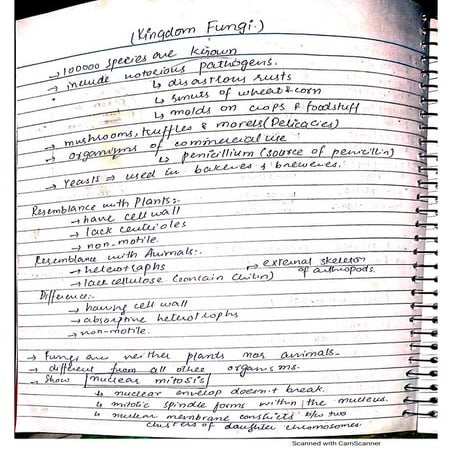 (Kingdom Fungi.)
→ 100000 species are known
→ include notorious pathogens.
↳ disastrous rusts
↳ smuts of wheat & corn
↳ molds on crops & foodstuff
→ mushrooms, truffles & morels (Delicacies)
→ organisms of commercial use
↳ penicillium (source of penicillin)
→ Yeasts ⇒ used in bakeries & breweries.
Resemblance with Plants:-
→ have cell wall
→ lack centrioles
→ non-motile.
Resemblance with Animals:-
→ heterotrophs
→ external skeleton
→ lack cellulose (contain chitin) of arthropods.
Difference:-
→ having cell wall
→ absorptive heterotrophs
→ non-motile.
→ Fungi are neither plants nor animals-
→ different from all other organisms.
→ Show [nuclear mitosis]
↳ nuclear envelop doesn't break.
↳ mitotic spindle forms within the nucleus.
↳ nuclear membrane constricts b/w two
clusters of daughter chromosomes.
Scanned with CamScanner